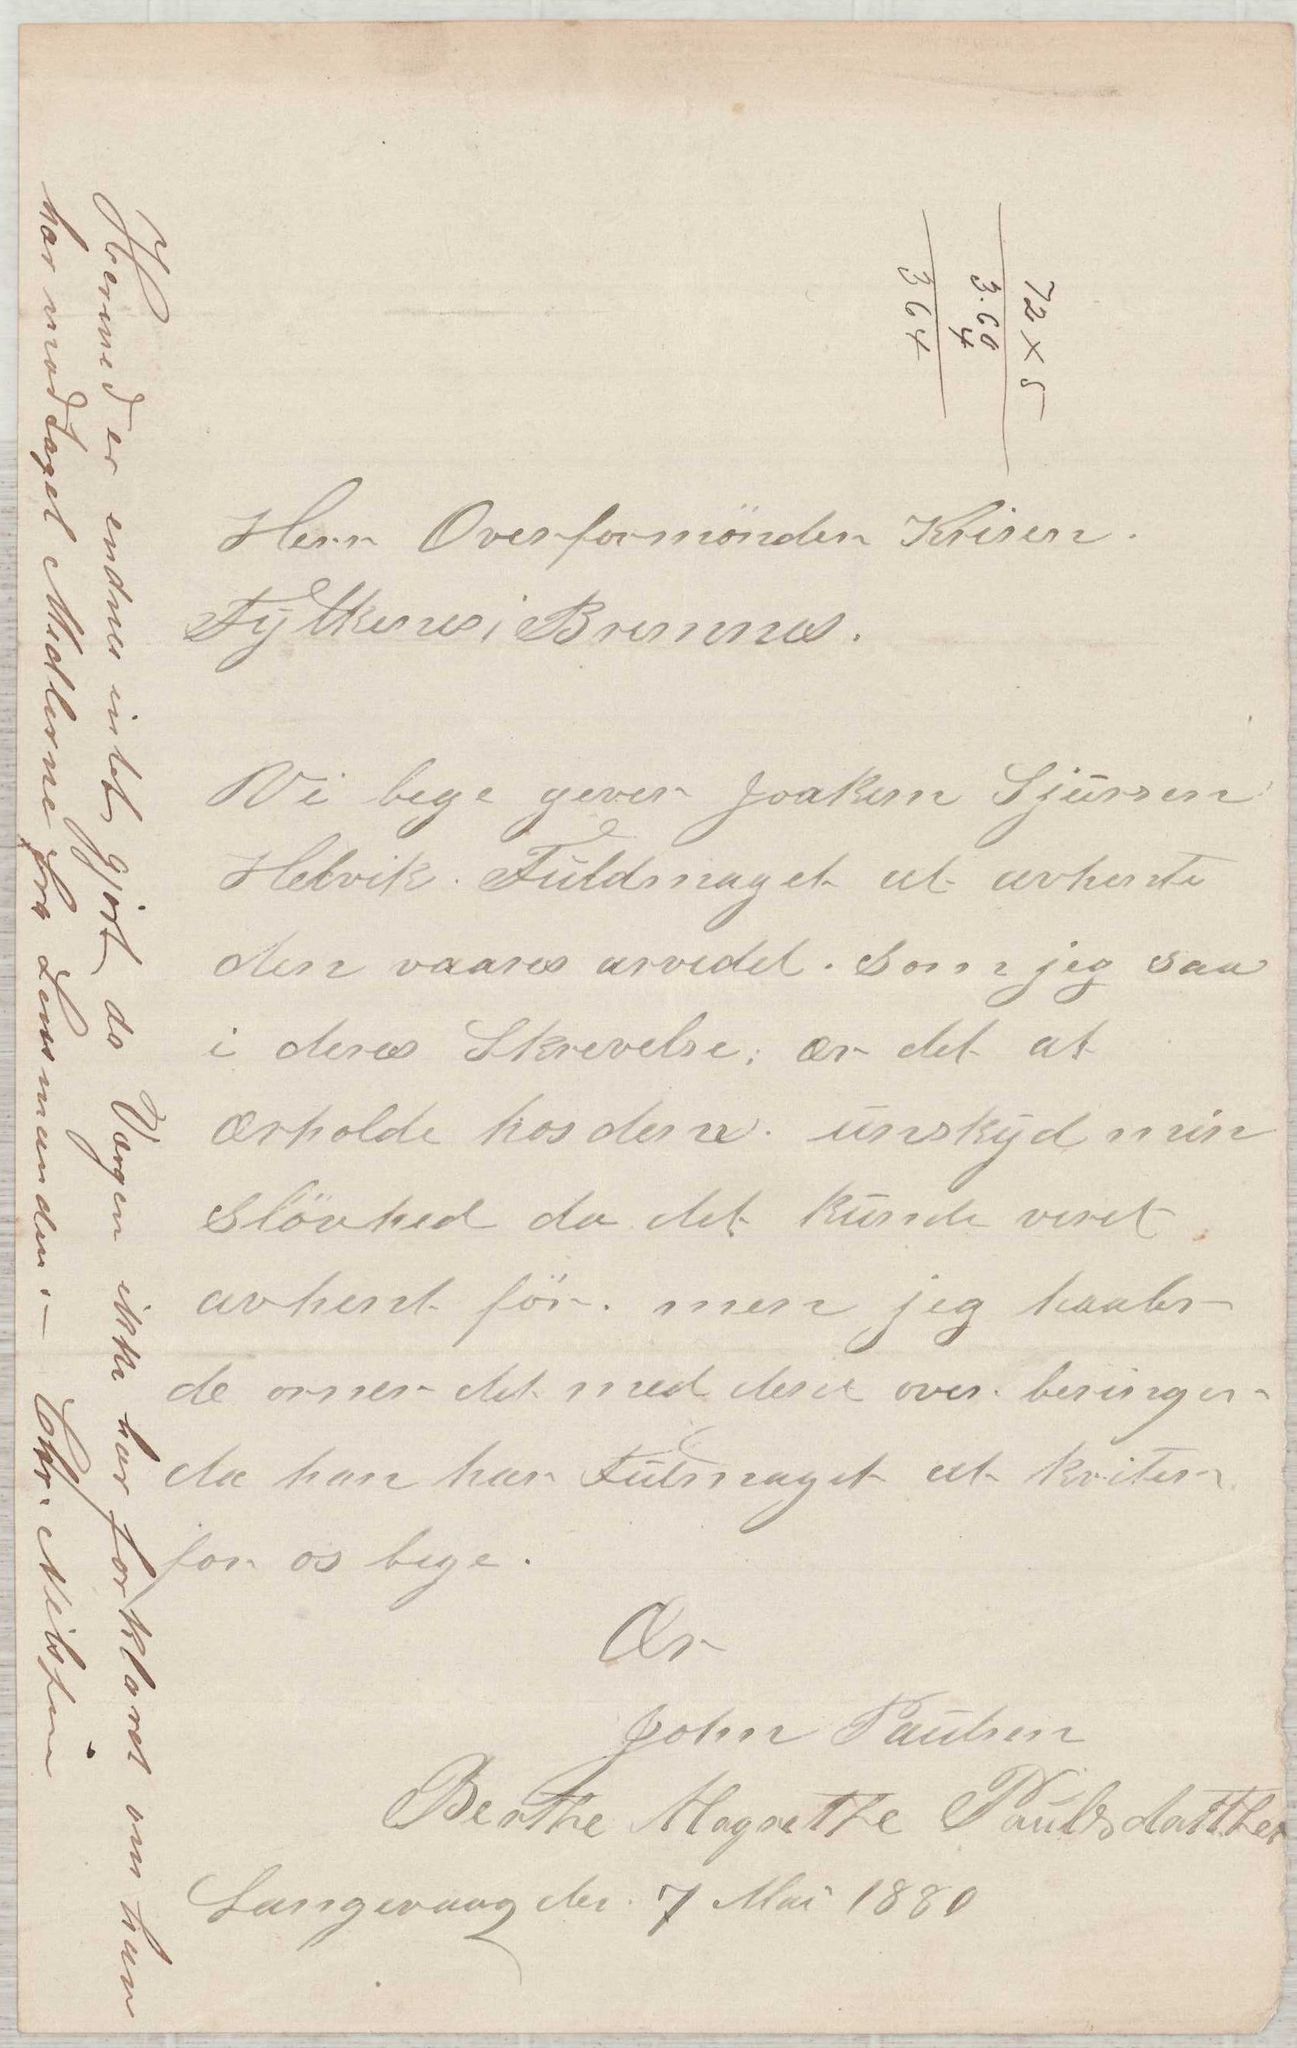 72 x 5
3.60
4
364
Herr Overformönder Krisen.
Fylkesnes i Bremnes.
Vi bege gever Joakem Sjursen
Helvik. Fuldmaget at avhente
den vaares arvedel. som jeg saa
i deres Skrevelse; ær det at
ærholde hos dem. unskyd min
slövhed da det kunde veret
avhent för. men jeg haaber
de orner det med dene over beringer
da han har Fulmaget at kviter
for os bege.
Ær
John Paulsen
Berthe Magrethe Paulsdatther
Langevaag den 7 Mai 1880
Hermed er endnu intet gjort, da Værgen ikke har forklaret om han
har modtaget Midlerne fra Lensmanden.— Chr. Nilsen